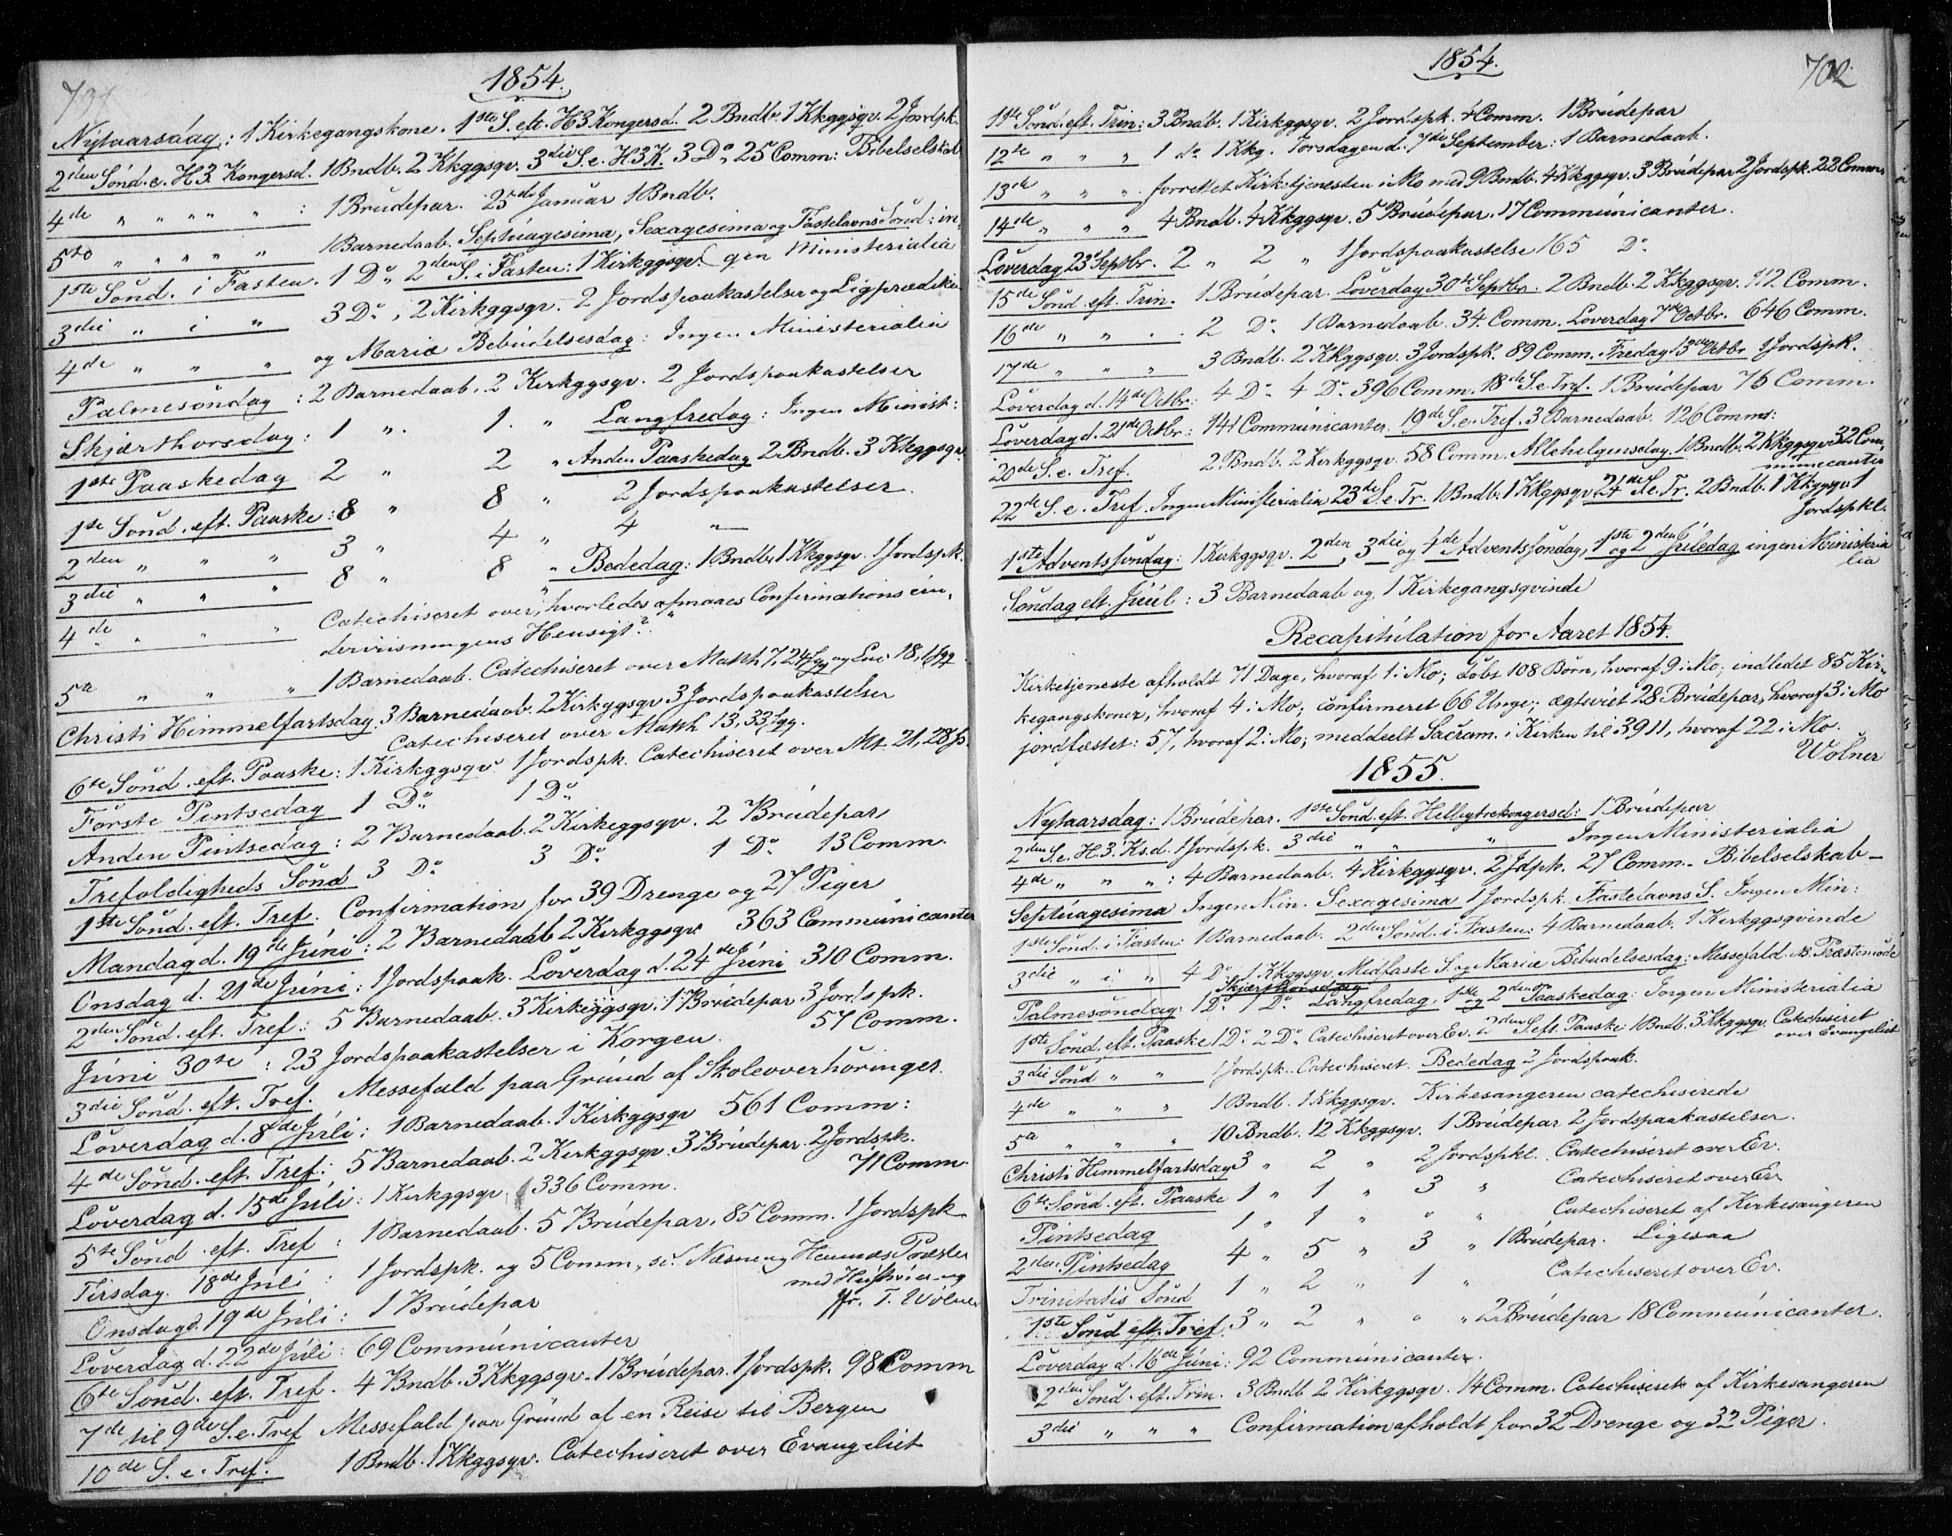 701
1854.
Nytaarsdag: 1 Kirkegangskone. 1ste S. eft. H3Kongersd. 2 Bndb. 1 Kkggsqv. 2 Jordspk.
2den Sönd. e. H.3. Kongersd. 1 Bndb. 2 Kkggsqv. 3die S. e. H3K. 3 Do 25 Comm: Bibelselskab
4de " " " " " : 1 Brúdepar. 25de Januar 1 Bndb.
5te " " " " " 1 Barnedaab. Septúagesima, Sexagesima og Fastelavns Sönd: in-
1ste Sönd. i Fasten. 1 Do 2den S. i Fasten: 1 Kirkggsqv. gen Ministerialia
3die " i " 3 Do, 2 Kirkggsqv. 2 Jordspaakastelser og Ligprædike
4de " " " og Mariæ Bebúdelsesdag: Ingen Ministerialia
Palmesöndag: 2 Barnedaab. 2 Kirkggsqv. 2 Jordspaakastelser
Skjærthorsdag: 1 ". 1. " Langfredag: Ingen Minist:
1ste Paaskedag 2 " 2 " Anden Paaskedag 2 Bndb. 3 Kkggsqv.
1ste Sönd. eft. Paaske: 8 " 8 " 2 Jordspaakastelser.
2den " " " 3 " 4 " 4 "
3die " " " 8 " 8 " Bededag: 1 Bndb. 1 Kkggsqv. 1 Jordspk.
4de " " " Catechiseret over, hvorledes opnaaes Confirmationsún-
derviisningens Hensigt?
5te " " " 1 Barnedaab. Catechiseret over Matth 7, 24fgg og Luc 18, 1fgg
Christi Himmelfartsdag. 3 Barnedaab. 2 Kirkggsqv 3 Jordspaakastelser
Catechiseret over Matth 13, 33fgg.
6te Sönd. eft. Paaske: 1 Kirkggsqv. 1 Jordspk. Catechiseret over Mt. 21, 28 f.
Förste Pintsedag 1 Do 1 Do
Anden Pintsedag: 2 Barnedaab. 2 Kirkeggsqv. 2 Brúdepar
Trefoldigheds Sönd 3 Do 3 Do 1 Do 13 Comm.
1ste Sönd. eft. Tref. Confirmation for 39 Drenge og 27 Piger
Mandag d. 19de Júni: 2 Barnedaab 2 Kirkggsqv 363 Commúnicanter
Onsdag d. 21de Júni: 1 Jordspaak. Löverdag d. 24de Júni 310 Comm.
2den Sönd. eft. Tref: 5 Barnedaab. 3 Kirkeggsqv. 1 Brúdepar 3 Jordspk.
57 Comm.
Júni 30te: 23 Jordspaakastelser i Korgen.
3die Sönd. eft. Tref. Messefald paa Grúnd af Skoleoverhöringer.
Löverdag d. 8de Júli: 1 Barnedaab. 1 Kirkggsqv 561 Comm:
4de Sönd. eft. Tref: 5 Barnedaab. 2 Kirkggsqv. 3 Brúdepar. 2 Jordspk.
71 Comm.
Löverdag d. 15de Júli: 1 Kirkggsqv 336 Comm.
5te Sönd. eft. Tref: 1 Barnedaab. 5 Brúdepar. 85 Comm. 1 Jordspk
Tirsdag. 18de Júli: 1 Jordspk. og 5 Comm, sc. Næsne og Hemnæs Præster
med Hústrúer og
Onsdag d. 19de Júli: 1 Brúdepar Jfr. T. Wölner
Löverdag d. 22de Júli: 69 Commúnicanter
6te Sönd. eft. Tref. 4 Bndb. 3 Kkggsqv. 1 Brúdepar. 1 Jordspk. 98 Comm
7de til 9de S. e. Tref Messefald paa Grúnd af en Reise til Bergen
10de S. e. Tref. 1 Bndb. 1 Kkggsqv. Catechiseret over Evangeliet
1854.
702
11te Sönd. eft. Trin: 3 Bndb. 1 Kirkggsqv. 2 Jordspk. 4 Comm. 1 Brúdepar
12te " " " 1 do 1 Kkg. Torsdagen d. 7de September: 1 Barnedaab.
13de " " ". forrettet Kirketjenesten i Mo med 9 Bndb. 4 Kkggsqv. 3 Brúdepar 2 Jordspk. 22 Comm
14de " " " 4 Bndb. 4 Kkggsqv. 5 Brúdepar. 17 Commúnicanter.
Löverdag 23 Septbr. 2 " 2 " 1 Jordspaakastelse 165 Do
15de Sönd. eft. Trin. 1 Brúdepar. Löverdag 30te Septbr: 2 Bndb. 2 Kkggsqv. 112 Comm.
16de " " ". 2 Do 1 Barnedaab. 34. Comm. Löverdag 7de Octbr. 646 Comm.
17de " " " 3 Bndb. 2 Kkggsqv. 3 Jordspk. 89 Comm. Fredag 13de Octbr. 1 Jordspk.
Löverdag d. 14de Octbr: 4 Do 4 Do 396 Comm. 18de S. e. Tref. 1 Brúdepar 75 Comm.
Löverdag d. 21de Octbr: 141 Commúnicanter. 19de S. e. Tref. 3 Barnedaab. 126 Comm:
20de S. e. Tref. 2 Bndb. 2 Kirkggsqv. 58 Comm. Allehelgensdag. 1 Bndb. 2 Kkggsqv. 32 Com-
municanter
22de S. e. Tref Ingen Ministerialia 23de S. e. Tr. 1 Bndb. 1 Kkggsqv 24de S. e. Tr. 2 Bndb. 1 Kkggsqv 1
Jordspkl.
1ste Adventsöndag: 1 Kirkggsqv. 2den, 3die og 4de Adventssöndag, 1ste og 2den Júledag ingen Ministeria
lia
Söndag eft. Júúl: 3 Barnedaab og 1 Kirkegangsqvinde
Recapitúlation for Aaret 1854.
Kirketjeneste afholdt 71 Dage, hvoraf 1 i Mo; döbt 108 Börn, hvoraf 9 i Mo; indledet 85 Kir-
kegangskoner, hvoraf 4 i Mo; confirmeret 66 Unge; ægteviet 28 Brúdepar, hvoraf 3 i Mo
jordfæstet: 57, hvoraf 2 i Mo; meddeelt Sacram. i Kirken til 3911, hvoraf 22 i Mo.
Wölner
1855.
Nytaarsdag: 1 Brúdepar. 1ste Sönd. eft. Helligtrekongersd: 1 Brúdepar
2den S. e. H. 3. Ks.d. 1 Jordspk. 3die " " " Ingen Ministerialia
4de " " ": 4 Barnedaab. 4 Kirkggsqv. 2 Jdspk. 27 Comm. Bibelselskab
Septúagesima Ingen Min. Sexagesima 1 Jordspk. Fastelavns S. Ingen Min:
1ste Sönd. i Fasten: 1 Barnedaab. 2den Sönd. i Fasten: 4 Barnedaab. 1 Kirkggsqvinde
3die " i " 4 Do 1 Kkggsqv. Midfaste S. og Mariæ Bebúdelsesdag: Messefald. NB. Præstemöde
Skjærthorsdag
Palmesöndag: 1 Do. 1 Do Langfredag, 1ste og 2den Paaskedag: Ingen Ministerialia
1ste Sönd eft. Paaske 1 Do 2 Do Catechiseret over Ev. 2den S. eft. Paaske 1 Bndb. 3 Kkggsqv. Catechiseret
over Evangeliet
3die Sönd " " 1 Jordspk. Catechiseret. Bededag 2 Jordspaak.
4de " " " 1 Bndb. 1 Kkggsqv. Kirkesangeren catechiserede
5te " " " 10 Bndb. 12 Kkggsqv. 1 Brúdepar 2 Jordspaakastelser.
Christi Himmelfartsdag 3 " 2 " 2 Jordspkl. Catechiseret over Ev.
6te Sönd. eft. Paaske 1 " 1 " 3 " Catechiseret over Ev
Pintsedag 1 " 1 " " " Catechiseret af Kirkesangeren
2den Pintsedag 4 " 5 " 3 " 1 Brúdepar. Ligesaa
Trinitatis Sönd 1 " 2 " 1 " Catechiseret over Ev.
1ste Sönd eft. Tref. 3 " 2 " " " 2 Brúdepar 18 Commúnicanter.
Löverdag d. 16de Júni: 92 Commúnicanter.
2den Sönd. eft. Trin. 3 Bndb 2 Kirkggsqv. 14 Comm. Catechiseret af Kirkesangeren
3die " " " Confirmation afholdt for 32 Drenge og 32 Piger.